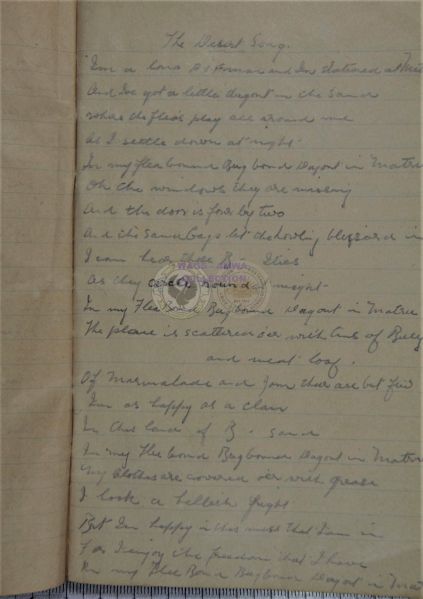 The Desert Song.
I'm a lone and I'm stationed at
And I've got a little dugout in the sand
where the flea's play all around me
As I settle down at night
In my flea bound Bug bound Dugout in Matru
Oh the windows they are missing
And the door is four by two
And the sand bags let the howling blizzard in
I can hear those B. flies
As they circle round at night
In my Flea Bound Bugbound Dugout in Matru
The place is scattered o'er with tins of Bully
and meat loaf.
Of Marmalade and jam there are but few
I'm as happy as a clam
In this land of B. sand
In my Flea bound Bugbound Dugout in Matru
My clothes are covered o'er with grease
I look a hellish fright
But I'm happy in this mess that I am in
For I enjoy the freedom that I have
In my Flea Bound Bugbound Dugout in
WAGS
COLLECTION